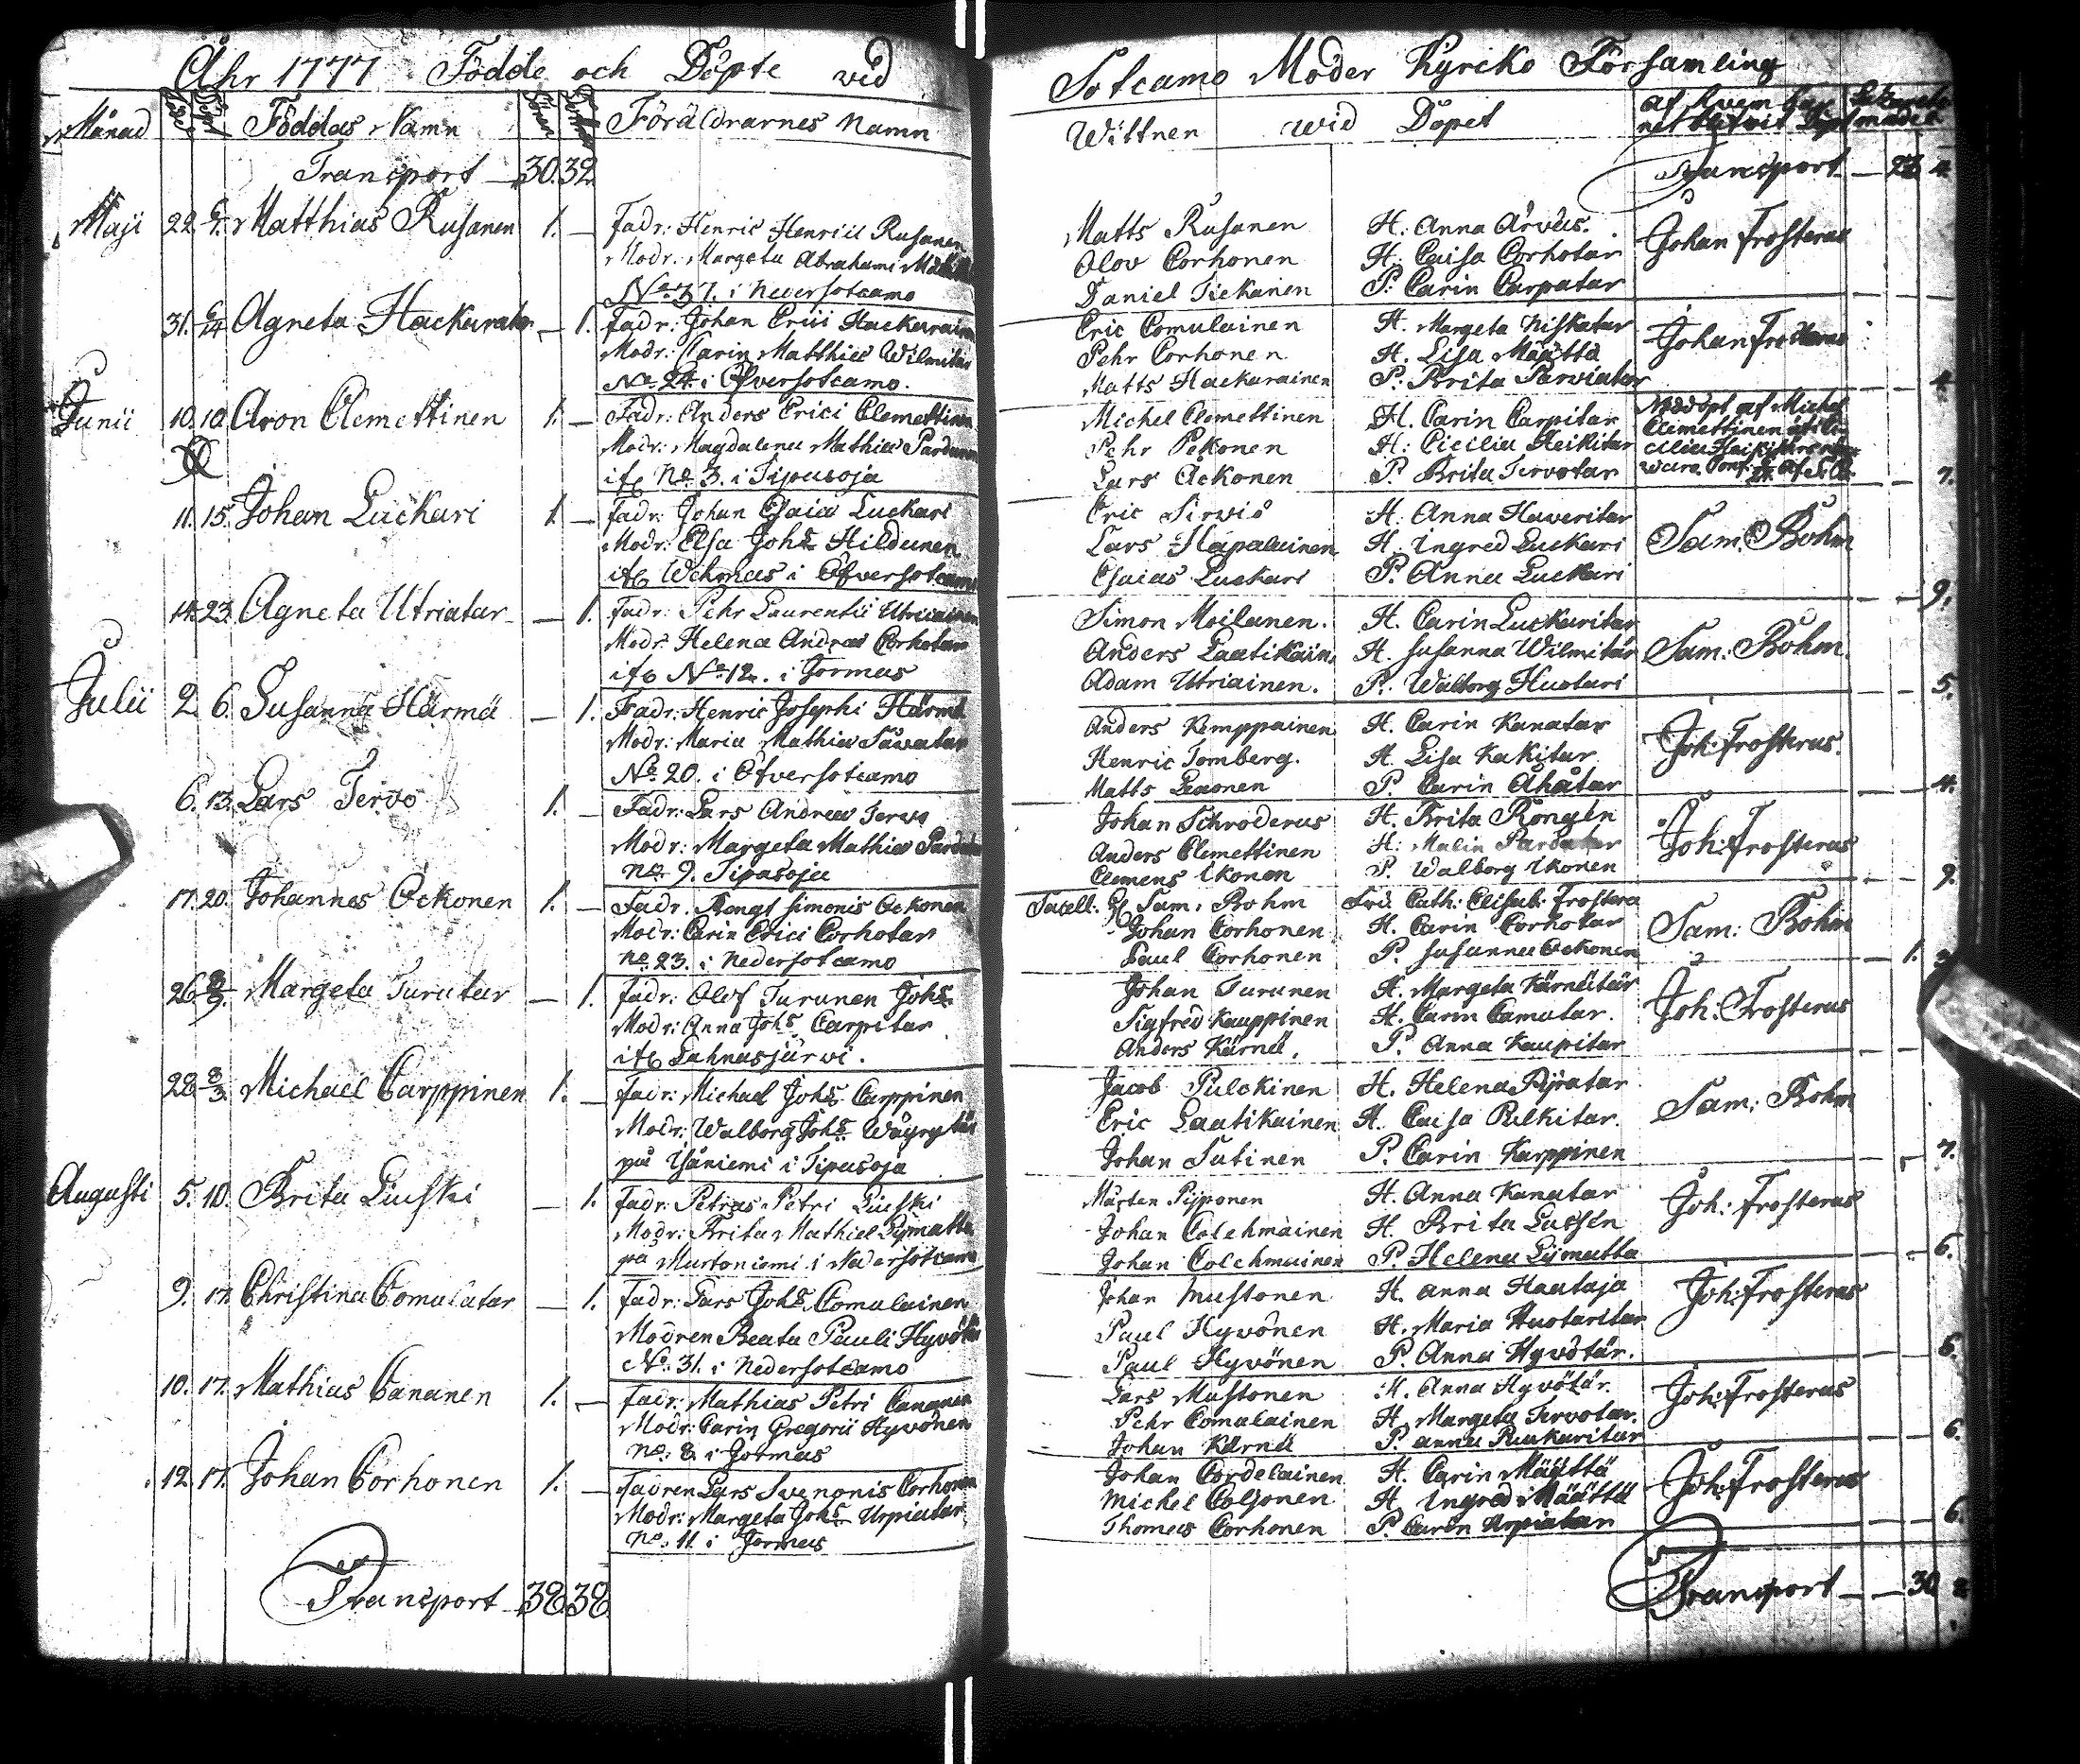 Åhr 1777 Födde och Döpte vid
Månad Föddas Namn Söner Döttrar Föräldrarnes Namn
Transport 30. 32.
Maji 22. 6/1. Matthias Rusanen 1. — Fadr: Henric Henrici Rusanen
Modr: Margeta Abrahami
No. 37. i Nedersotcamo
31. 6/14 Agneta Hackuratar — 1. Fadr: Johan Erici Hackurainen
Modr: Carin Matthiæ Wilmitar
No. 24. i Öfversotcamo.
Junii 10. 10. Aron Clemettinen 1. — Fadr: Anders Erici Clemettinen
Modr: Magdalena Mathiæ
ifr. No. 3. i Tipasoja
11. 15. Johan Luckari 1. — Fadr: Johan Esaiæ Luckari
Modr: Elsa Johs. Hildunen
ifr. Wehmas i Öfversotcamo
14. 23. Agneta Utriatar — 1. Fadr: Pehr Laurentii Utriainen
Modr: Helena Andreæ Corhotar
ifr. No. 12. i Jormas
Julii 2. 6. Susanna Härmä — 1. Fadr: Henric Josephi Härmä
Modr: Maria Mathiæ Säwatar
No. 20. i Öfversotcamo
6. 13. Lars Tervo 1. — Fadr: Lars Andreæ Tervo
Modr: Margeta Mathiæ
No. 9. Tipasoja
17. 20. Johannes Ockonen 1. — Fadr: Bengt Simonis Ockonen
Modr: Carin Erici Corhotar
No. 23. i Nedersotcamo
26. 8/3. Margeta Turutar — 1. Fadr: Olof Turunen Johs.
Modr: Anna Johs. Carpitar
ifr. Lahnasjärvi.
28. 8/3. Michael Carppinen 1. — Fadr: Michael Johs. Carppinen
Modr: Walborg Johs.
på Ysäniemi i Tipasoja
Augusti 5. 10. Brita Liuski — 1. Fadr: Petrus Petri Liuski
Modr: Brita Mathiæ Lijmatta
på Murtoniemi i Nedersotcamo
9. 17. Christina Comulatar — 1. Fadr: Lars Johs. Comulainen
Modren Beata Pauli Hyvötär
No. 31. i Nedersotcamo
10. 17. Mathias Cananen 1. — Fadr: Mathias Petri Cananen
Modr: Carin Gregorii Hyvönen
No. 8. i Jormas
12. 17. Johan Corhonen 1. — Fadren Lars Svenonis Corhonen
Modr: Margeta Johs. Urpiatar
No. 11. i Jormas
Transport 38. 38.
Sotcamo Moder Kyrcko Församling
Wittnen wid Döpet af hvem bar
net blifvit Döpt
Transport 4.
Matts Rusanen H. Anna Årvus. Johan Frosterus
Olov Corhonen H. Caisa Corhotar
Daniel Tickanen P. Carin Carpatar
Eric Comulainen H. Margeta Niskatar Johan Frosterus
Pehr Corhonen H. Lisa Määttä
Matts Hackurainen P. Brita Parviatar 4.
Michel Clemettinen H. Carin Carpitar Nöddöpt af Michel
Pehr Pekonen H. Cicilia Heikitar Clemettinen
Lars Ackonen P. Brita Tervotar 7.
Eric Sirviö H. Anna Haveritar Sam. Bohm
Lars Hapalainen H. Ingred Luckari
Esaias Luckari P. Anna Luckari 9.
Simon Moilanen. H. Carin Luckaritar Sam: Bohm.
Anders Laatikain. H. Susanna Wilmitär
Adam Utriainen. P. Walborg Huotari 5.
Anders Kemppainen H. Carin Kanatar Joh: Frosterus.
Henric Tomberg. H. Lisa Kakitar
Matts Leaonen P. Carin Ahåtar 4.
Johan Schroderus H. Brita Rongén Joh: Frosterus
Anders Clemettinen H: Malin
Clemens Ikonen P. Walborg Ikonen 9.
Sacell. Sam. Bohm Fru Cath: Elisab. Frostera Sam: Bohm
Johan Corhonen H. Carin Corhotar
Paul Corhonen P. Susanna Ockonen 1. 3.
Johan Turunen H. Margeta Kärnätär Joh: Frosterus
Sigfred Kauppinen H. Carin Camutar.
Anders Kärnä. P. Anna Kaupitar
Jacob Pulckinen H. Helena Pijratar Sam: Bohm
Eric Laatikainen H. Caisa Pulkitar.
Johan Sutinen P. Carin Karppinen 7.
Mårten Pijponen H. Anna Kanatar Joh: Frosterus
Johan Colchmainen H. Brita Lassén
Johan Colchmainen P. Helena Lijmatta 6.
Johan Mustonen H. Anna Haataja Joh: Frosterus
Paul Hyvönen H. Maria Huotaritar
Paul Hyvönen P. Anna Hyvötär. 6.
Lars Mustonen H. Anna Hyvötär. Joh: Frosterus
Pehr Comulainen H. Margeta Tervotar.
Johan Kärnä P. Anna Puukaritar 6.
Johan Cordelainen H. Carin Määttä Joh: Frosterus
Michel Coljonen H. Ingred Määttä
Thomas Corhonen P. Carin Urpiatar 6.
Transport 30